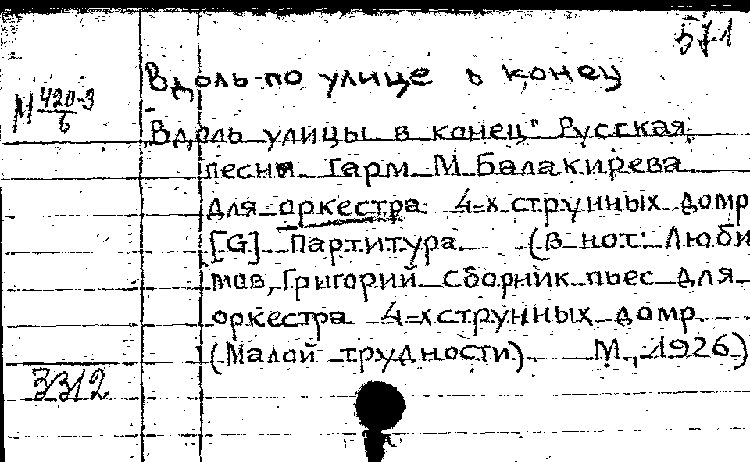 571
Вдоль по улице в конец
М 420-3
6
"Вдоль улицы в конец" Русская
песня гарм М. Балакирева
для оркестра 4-х струнных домр
[G] Партитура (в нот: Люби
мов, Григорий Сборник пьес для
оркестра 4-х струнных домр
(Малой трудности). М., 1926)
3312